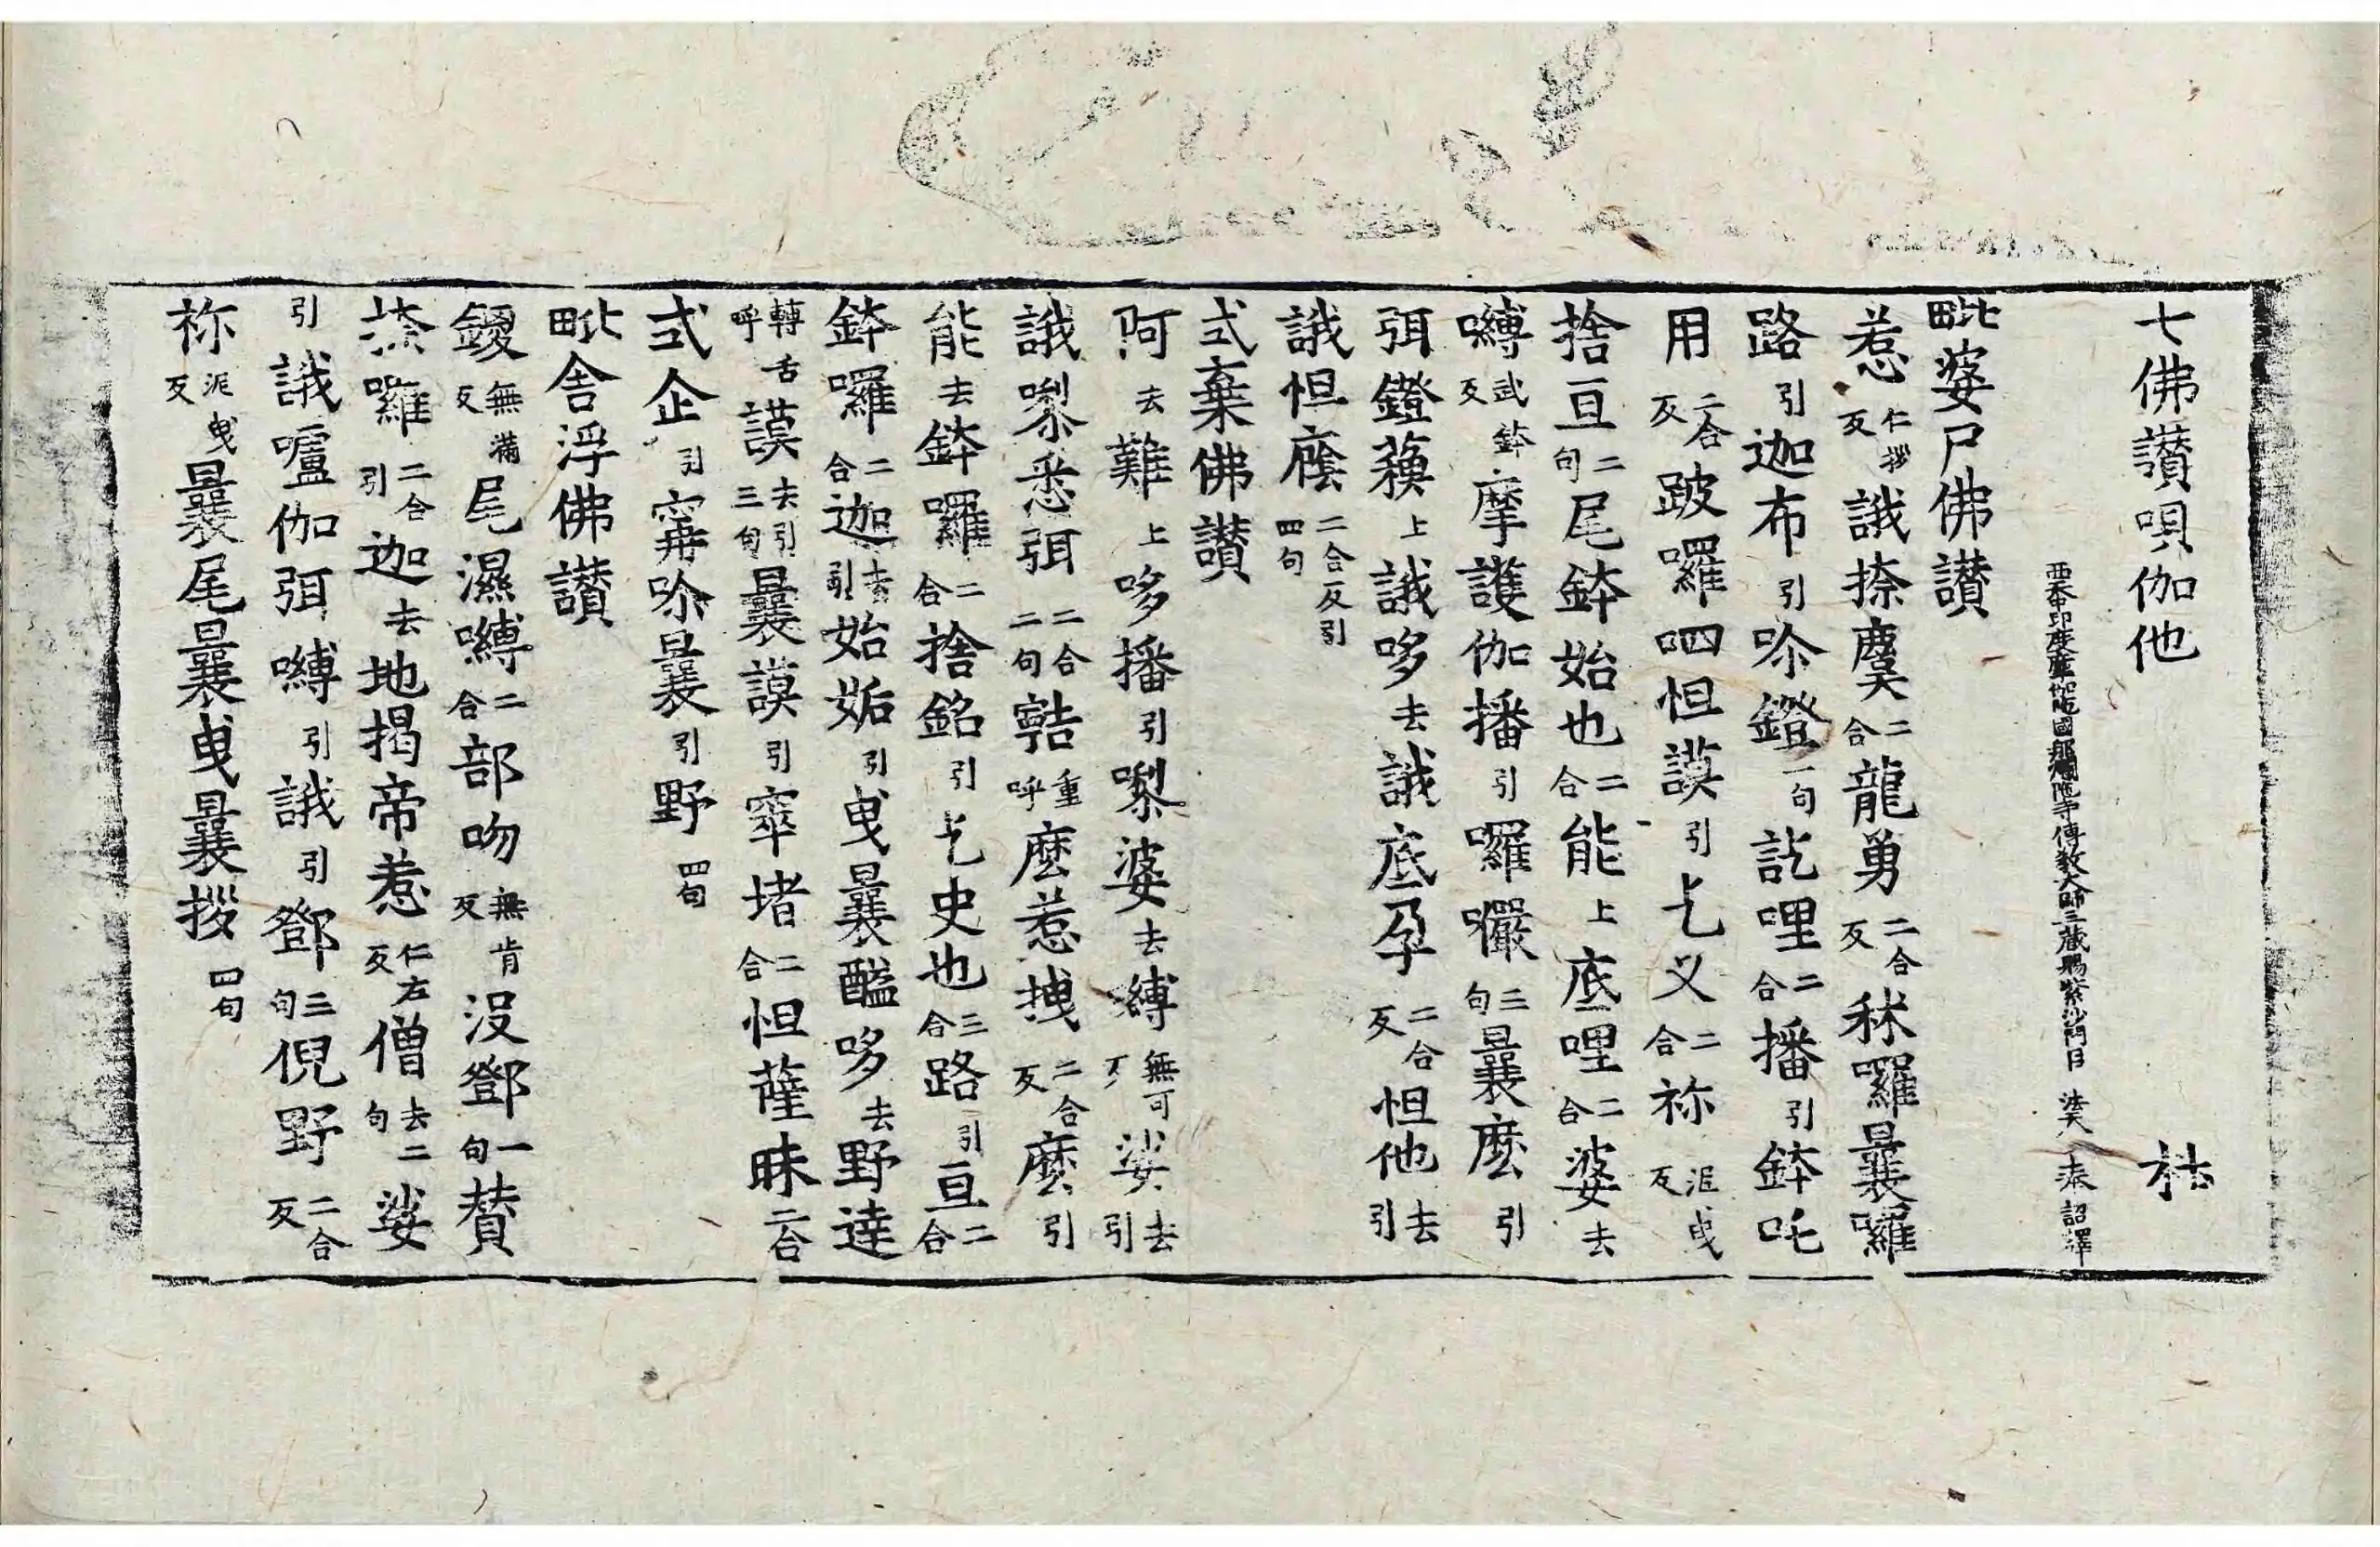 七佛讃唄伽他 枯
西天中印度摩伽陀國那爛陀寺傳教大師三藏賜紫沙門臣 法天 奉 詔譯
毗婆尸佛讃
惹仁拶反誐捺虞二合龍勇二合反秣囉曩囉
路引迦布引唥鐙一句訖哩二合播引鉢吒
用二合反跛囉呬怛謨引乞义二合祢泥曳反
捨亘二句尾鉢始也二合能上底哩二合婆去
嚩武鉢反摩護伽播引囉囉三句曩麽引
弭鐙蘓上誐哆去誐底孕二合反怛他去引
誐怛廕二合反引四句
式棄佛讃
阿去難上哆播引㗚婆去縛無可反娑去引
誐㗚悉弭二合二句嚞重呼麽惹拽二合反麽引
能去鉢囉二合捨銘引乞史也三合路引亘二合
鉢囉二合迦去引始姤引曳曩醯哆去野達
轉舌呼謨去引三句曩謨引窣堵二合怛薩昧二合
式企引寗唥曩引野四句
毗舍浮佛讃
鑁無滿反尾濕嚩二合部吻無肯反沒鄧一句賛
捺囉二合引迦去地揭帝惹仁左反僧去二句娑
引誐嚧伽弭嚩引誐引鄧三句倪野二合反
祢泥曳反曩尾曩曳曩拶四句